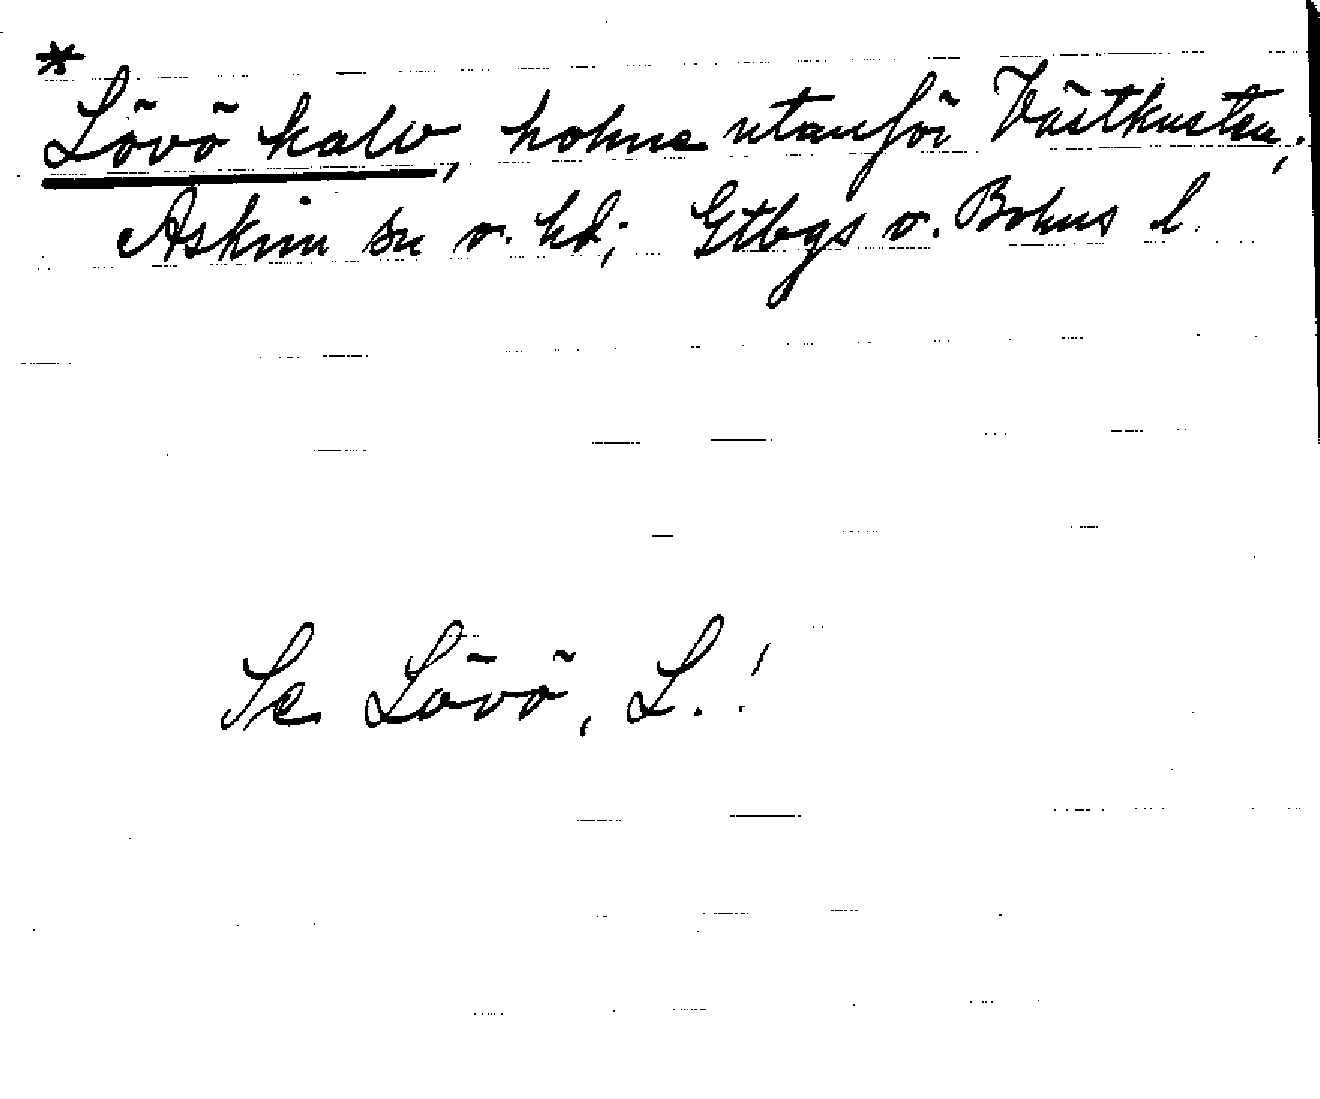 *
Lövö kalv, holme utanför Västkusten,
Askim sn o. hd; Gtbgs o. Bohus l.
Se Lövö, L.!